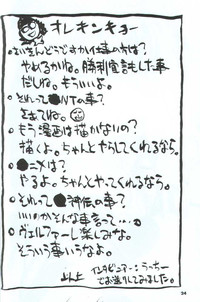 オレキンキョー
●さいきんどうですか仕事の方は?
やめるかね。勝利宣言もした事
だしね。もういいよ。
●それって●NTの事?
さあてね。
●もう漫画は描かないの?
描くよ。ちゃんとやらしてくれるなら。
●●ニメは?
やるよ。ちゃんとやってくれるなら。
●それって●神伝の事?
いいのかそんな事言って…
●ヴェルファーレ楽しみな。
そういう事いうなよ。
以上
インタビュアー:うっちー
でお送りしてみました。